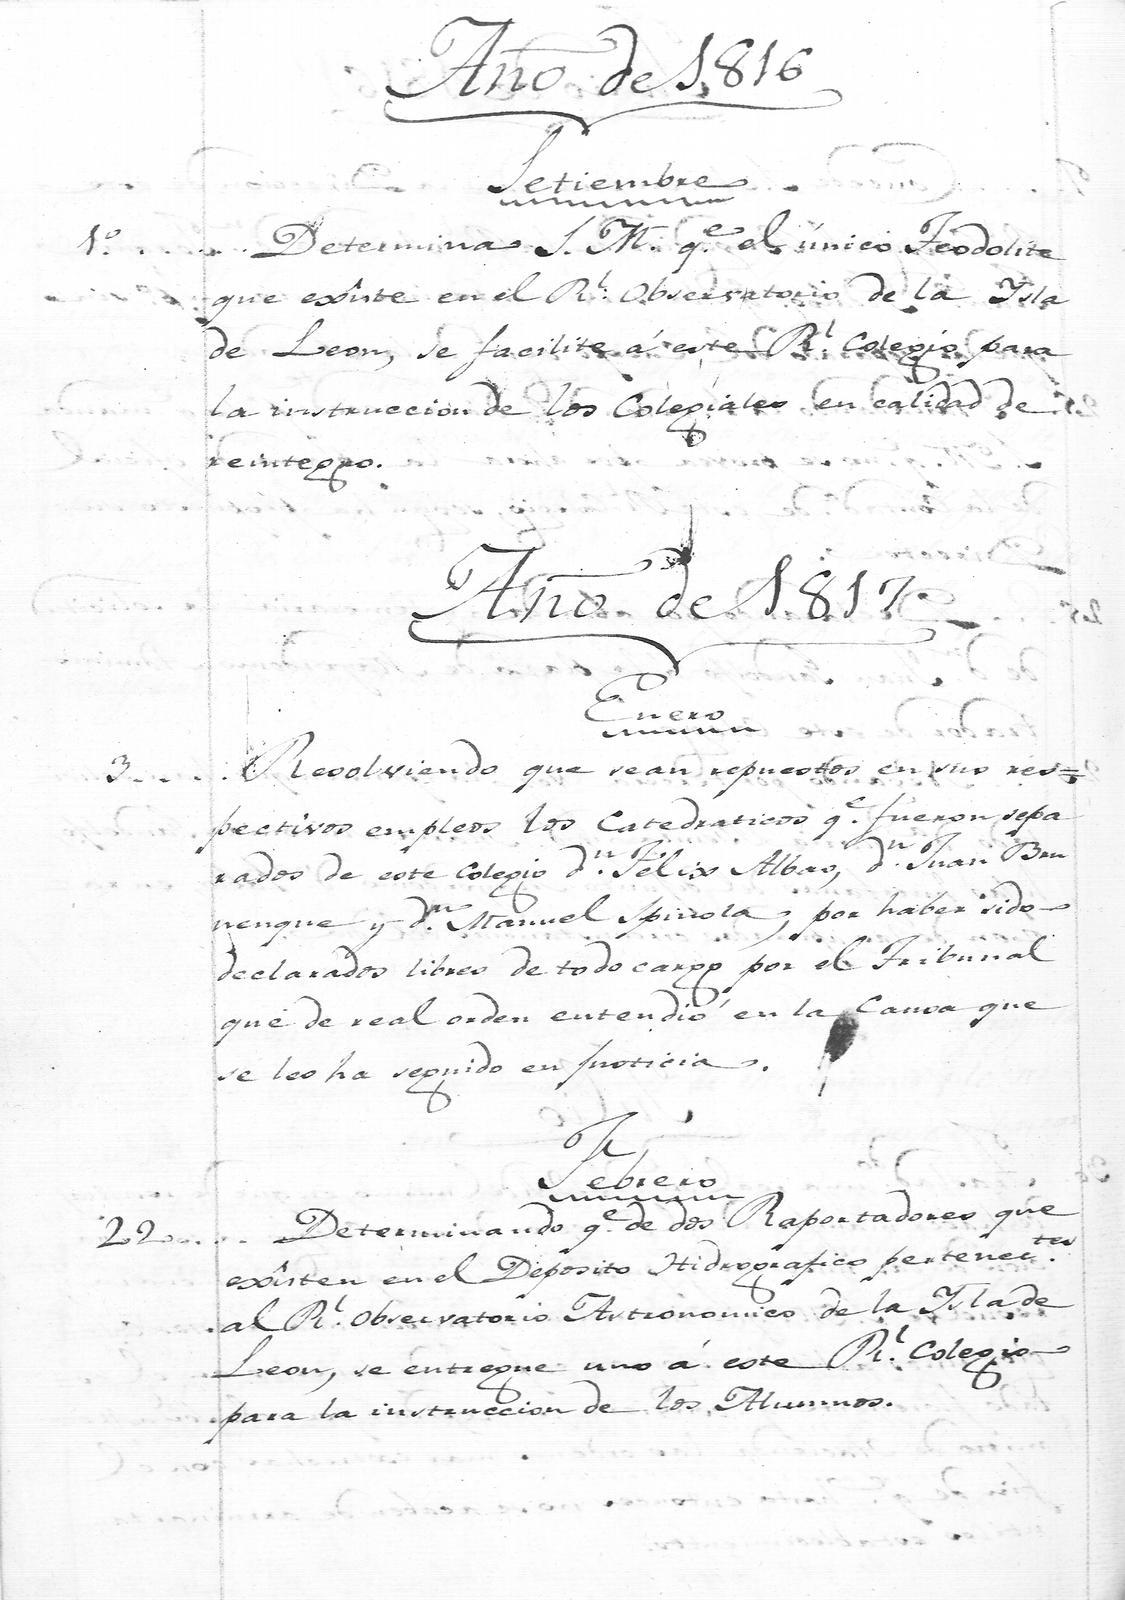 Año de 1816
Setiembre
1.º ........ Determina S. M. q.e el único Teodolite
que existe en el R.l Observatorio de la Ysla
de Leon, se facilite á este R.l Colegio para
la instruccion de los Colegiales en calidad de
reintegro.
Año de 1817
Enero
3...... Resolviendo que sean repuestos en sus res=
pectivos empleos los Catedraticos q.e fueron sepa
rados de este Colegio d.n Felix Albas, d.n Juan Bru
nenque y d.n Manuel Spinola, por haber sido
declarados libres de todo cargo por el Tribunal
que de real orden entendió en la Causa que
se les ha seguido en justicia.
Febrero
22...... Determinando q.e de dos Raportadores que
existen en el Deposito Hidrografico pertenec.tes
al R.l Observatorio Astronomico de la Ysla de
Leon, se entregue uno á este R.l Colegio
para la instruccion de los Alumnos.